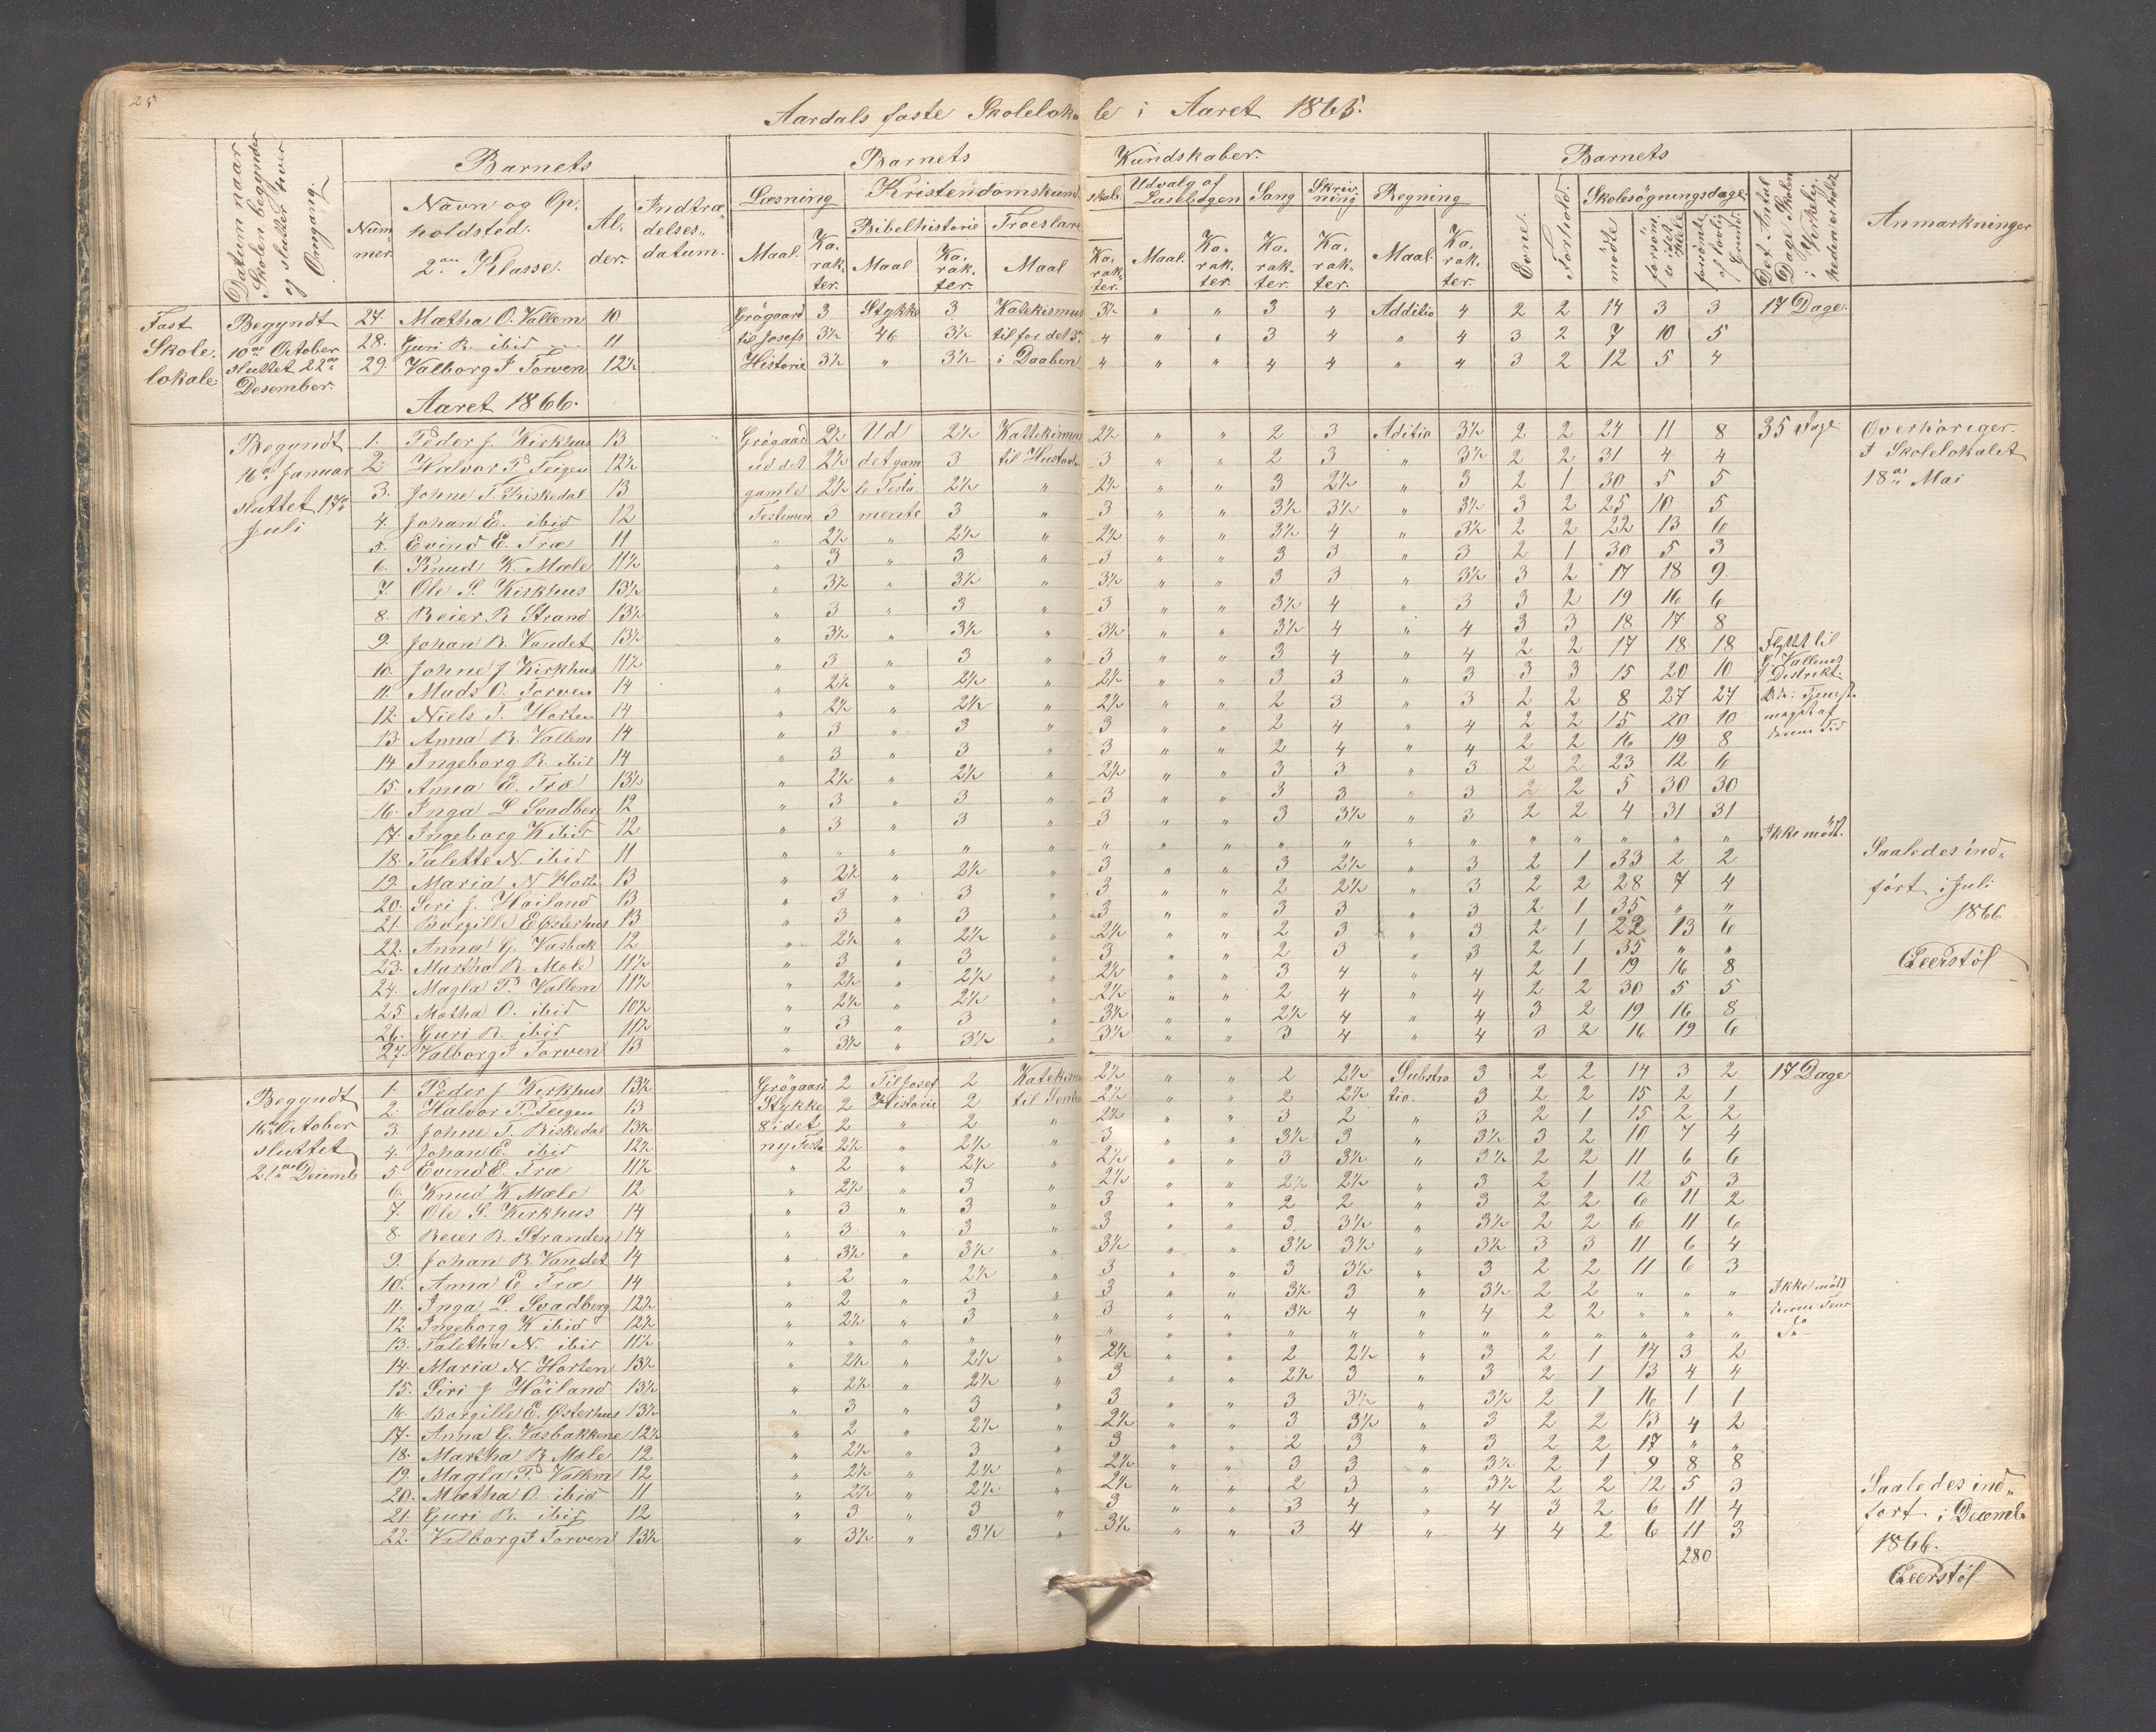 25
Aardals faste Skolelokale i Aaret 1865.
Datum naar Skolen begynder og slutter hver Omgang.
Barnets
Barnets Kundskaber.
Barnets
Anmærkninger
Nummer
Navn og Opholdsted.
2den Klasse.
Alder.
Indtrædelsesdatum.
Læsning
Kristendomskundskab.
Udvalg af Læsebogen
Sang
Skrivning
Regning
Evne.
Forhold.
Skolesøgningsdage.
Det Antal Dage Skolen i Virkeligheden er holdt
Bibelhistorie
Troeslære
Maal.
Karakter.
Maal
Karakter.
Maal
Karakter.
Maal.
Karakter.
Karakter.
Karakter.
Maal.
Karakter.
mødte
forsømte i det Hele
forsømte af lovlig Grund.
Fast Skolelokale
Begyndt 10de October sluttet 22de Desember.
27. Mætha O. Vallem 10 Grøgaard 3 Stykke 3 Katekismus 3½ " " 3 4 Additio 4 2 2 14 3 3 17 Dage.
28. Guri R. ibid 11 til Josefs 3½ 46 3½ til for det 3. 4 " " 3 4 " 4 3 2 7 10 5
29. Valborg J Torven 12½ Historie 3½ " 3½ i Daaben 4 " " 4 4 " 4 3 2 12 5 4
Aaret 1866.
Begyndt 16de Januar sluttet 17de Juli
1. Peder J. Kirkhus 13 Grøgaard 2½ Ud 2½ Kattekismus 2½ " " 2 3 Aditio 3½ 2 2 24 11 8 35 Dage Overhöringer.
2 Halvor P. Teigen 12½ ud det 2½ det gam 3 til Hustavl 3 " " 2 3 " 3½ 2 2 31 4 4 I Skolelokalet
3. Johne T. Riskedal 13 gamle 2½ le Testa 2½ " 2½ " " 3 2½ " 3 2 1 30 5 5 18de Mai
4. Johan E. ibid 12 Testemen 3 mente 3 " 3 " " 3½ 3½ " 3½ 3 2 25 10 5
5. Evind E. Træ 11 " 2½ " 2½ " 2½ " " 3½ 4 " 3½ 2 2 22 13 6
6. Knud K. Mæle 11½ " 3 " 3 " 3 " " 3 3 " 3 2 1 30 5 3
7. Ole S. Kirkhus 13½ " 3½ " 3½ " 3½ " " 3 3 " 3½ 3 2 17 18 9.
8. Reier R Strand 13½ " 3 " 3 " 3 " " 3½ 4 " 3 3 2 19 16 6
9. Johan R. Vandet 13½ " 3½ " 3½ " 3½ " " 3½ 4 " 4 3 3 18 17 8
10. Johne J Kirkhus 11½ " 3 " 3 " 3 " " 3 4 " 4 2 2 17 18 18 Flyttet til
11. Mads O. Torven 14 " 2½ " 2½ " 2½ " " 3 3 " 3 3 3 15 20 10 G. Vallems Distrikt.
12. Niels T. Horten 14 " 2½ " 2½ " 2½ " " 2 3 " 3 2 2 8 27 27
13. Anna R. Vallem 14 " 3 " 3 " 3 " " 2 4 " 4 2 2 15 20 10
14 Ingeborg R. ibid 14 " 3 " 3 " 3 " " 2 4 " 4 2 2 16 19 8
15. Anna E. Træ 13½ " 2½ " 2½ " 2½ " " 3 3 " 3 2 2 23 12 6
16. Inga L Svadberg 12 " 3 " 3 " 3 " " 3 3 " 3 2 2 5 30 30
17. Ingeborg K ibid 12 " 3 " 3 " 3 " " 3 3½ " 3 2 2 4 31 31
18. Talette N. ibid 11 " " " " " " " " " " " " " " " " " Ikke mødt.
19. Maria N Horten 13 " 2½ " 2½ 3 " " 3 2½ " 3 2 1 33 2 2 Saaledes ind-
20. Siri J. Höiland 13 " 3 " 3 3 " " 2 2½ " 3 2 2 28 7 4 ført i Juli
21. Borgille E Østerhus 13 " 3 " 3 3 " " 3 3 " 3 2 1 35 " " 1866
22. Anna G. Vasbak 12 " 2½ " 2½ 2½ " " 2 3 " 3 2 1 22 13 6
23. Martha R. Mæle 11½ " 3 " 3 3 " " 2 3 " 3 2 1 35 " "
24. Magla P. Vallem 11½ " 2½ " 2½ " 2½ " " 3 4 " 4 2 1 19 16 8
25 Mætha O. ibid 10½ " 2½ " 2½ " 2½ " " 2 4 " 4 2 2 30 5 5
26. Guri R. ibid 11½ " 3 " 3 " 3½ " " 2½ 4 " 4 3 2 19 16 8
27. Valborg J Torven 13 " 3½ " 3½ " 3½ " " 3 4 " 4 3 2 16 19 6
Begyndt 16de October sluttet 21de Decemb
1. Peder J Kirkhus 13½ Grøgaard 2 Til Josef 2 Katekism 2½ " " 2 2½ Substra 3 2 2 14 3 2 17 Dage
2. Halvor P. Teigen 13 Stykke 2 Historie 2 2½ " " 2 2½ tio. 3 2 2 15 2 1
3. Johne T. Riskedal 13½ 8 i det 2 " 2 " 2½ " " 3 2 " 3 2 1 15 2 2
4. Johan E. ibid 12½ ny Testa 2½ " 2½ " 3 " " 3½ 3 " 3½ 3 2 10 7 4
5 Evend E. Træ 11½ " 2 " 2½ " 2½ " " 3 3½ " 3½ 2 2 11 6 6
6. Knud K Mæle 12 " 2½ " 3 " 2½ " " 2½ 2½ " 3 2 1 12 5 3
7. Ole S. Kirkhus 14 " 3 " 3 " 3 " " 2 2 " 3 2 2 6 11 2
8. Reier R. Stranden 14 " 3 " 3 " 3 " " 3 3½ " 3½ 2 2 6 11 6
9. Johan R. Vandet 14 " 3½ " 3½ " 3½ " " 3½ 3½ " 3½ 3 3 11 6 4
10. Anna E Træ 14 " 2 " 2½ " 3 " " 3 3½ " 3 2 2 11 6 3
11. Inga L. Svadberg 12½ " 2 " 3 " 3 " " 3½ 3 " 3½ 2 2 " " " Ikke mødt
12. Ingeborg K ibid 12½ " 2½ " 3 " 3 " " 3½ 4 " 4 2 2 " " "
13. Taletha N. ibid 11½ " " " " " " " " " " " " " " " " "
14. Maria N. Horten 13½ " 2½ " 2½ " 2½ " " 2 2½ " 3 2 1 14 3 2
15. Siri J Höiland 13½ " 2½ " 2½ " 3 " " 2½ 3 " 3 2 1 13 4 4
16. Borgille E. Østerhus 13½ " 3 " 3 " 3 " " 3 3½ " 3½ 2 1 16 1 1
17. Anna G. Vasbakkene 12½ " 2 " 2½ " 2½ " " 3 3½ " 3 2 2 13 4 2
18. Martha R Mæle 12 " 2½ " 3 " 3 " " 2 3 " 3 2 2 17 " "
19. Magla P. Vallem 12 " 2½ " 2½ " 2½ " " 3 3 " 3½ 2 1 9 8 8
20. Mætha O. ibid 11 " 2½ " 2½ " 2½ " " 2 3 " 3½ 2 2 12 5 3 Saaledes ind-
21. Guri R. ibid 12 " 3 " 3 " 3 " " 3 4 " 4 3 2 6 11 4 ført i Decemb.
22. Valborg J Torven 13½ " 3½ " 3½ " 3½ " " 3 4 " 4 4 2 6 11 3 1866.
280